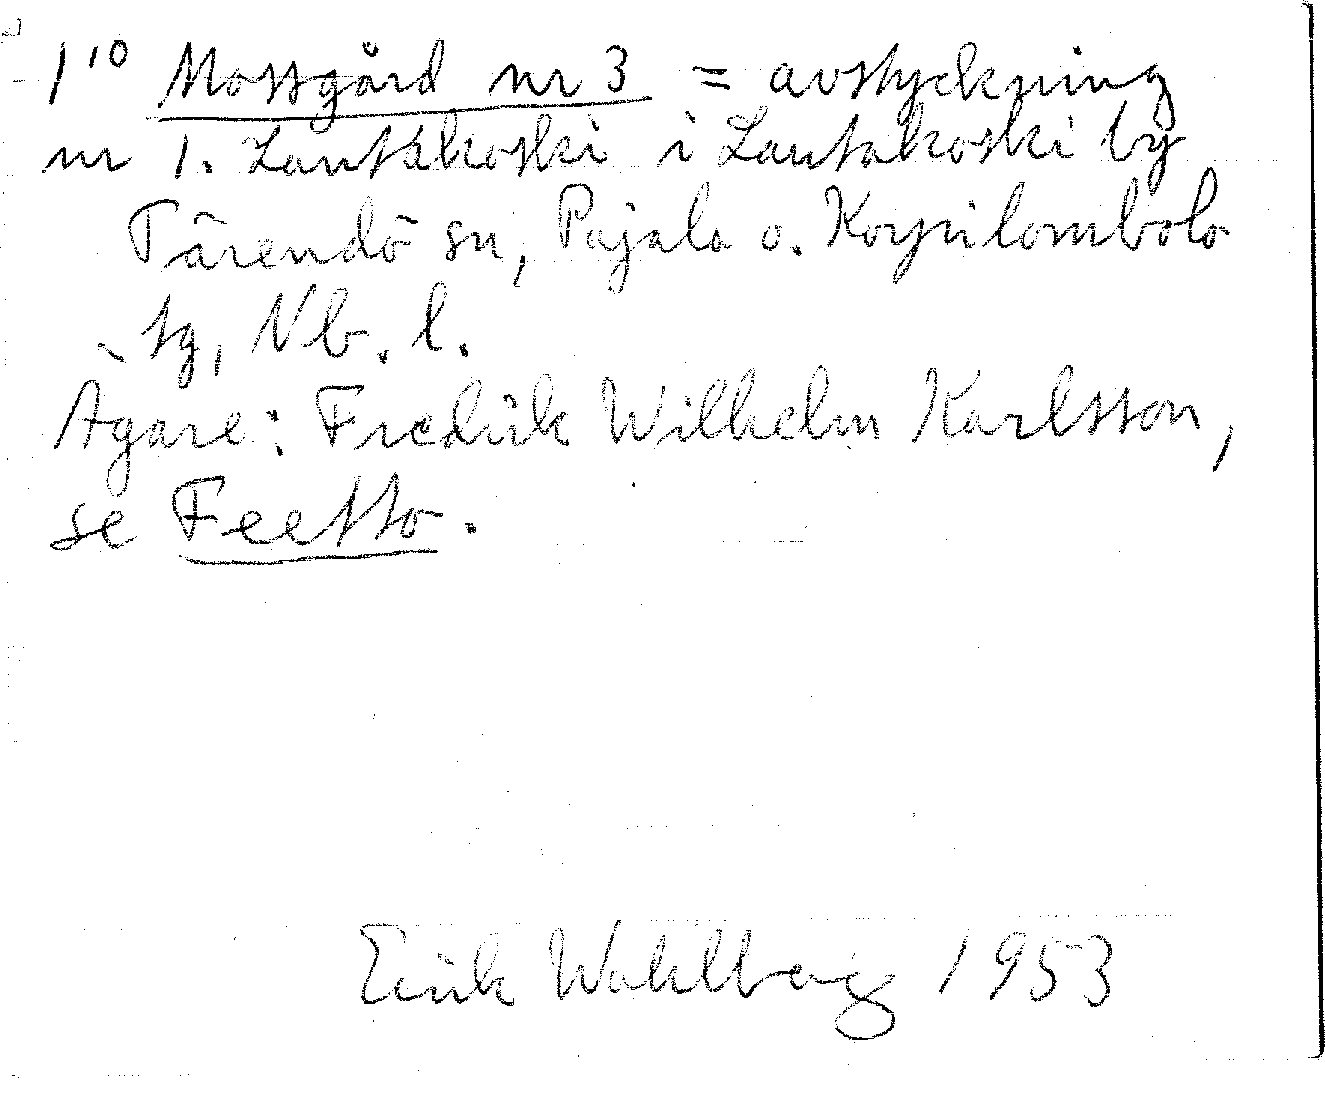 1¹⁰ Mossgård nr 3 = avstyckning
nr 1. Lautakoski i Lautakoski by
Tärendö sn, Pajala o. Korpilombolo
tg, Nb. l.
Ägare: Fredrik Wilhelm Karlsson,
se Feetto.
Erik Wahlberg 1953